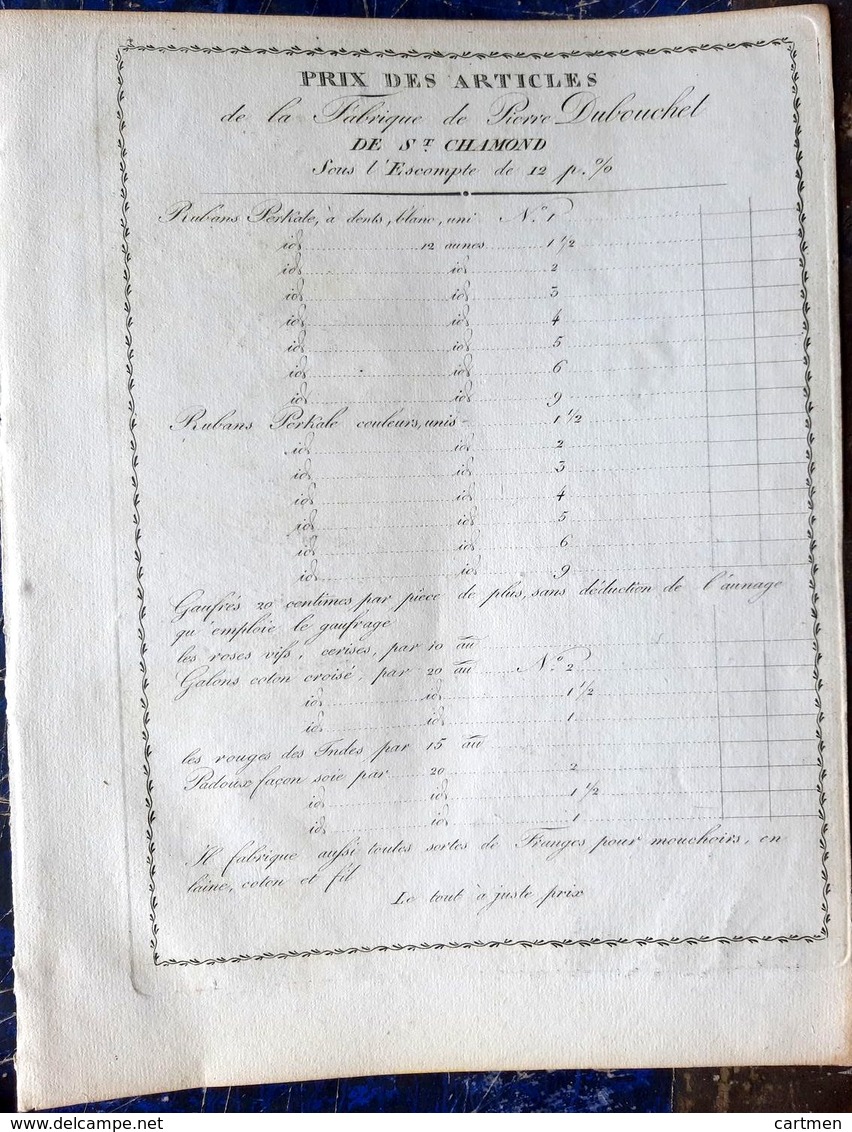 PRIX DES ARTICLES
de la Fabrique de Pierre Dubouchet
DE St. CHAMOND
Sous l'Escompte de 12 p. %
Rubans Perkale, à dents, blanc, uni No. 1
id 12 aunes 1 1/2
id id 2
id id 3
id id 4
id id 5
id id 6
id id 9
Rubans Perkale couleurs, unis 1 1/2
id id 2
id id 3
id id 4
id id 5
id id 6
id id 9
Gaufrés 20 centimes par pièce de plus, sans déduction de l'aunage
qu'emploie le gaufrage
les roses vifs, cerises, par 10 au
Galons coton croisé, par 20 au No. 2
id id 1 1/2
id id 1
les rouges des Indes par 15 au
Padoux façon soie par 20 2
id id 1 1/2
id id 1
Il fabrique aussi toutes sortes de Franges pour mouchoirs, en
laine, coton et fil
Le tout à juste prix
cartmen